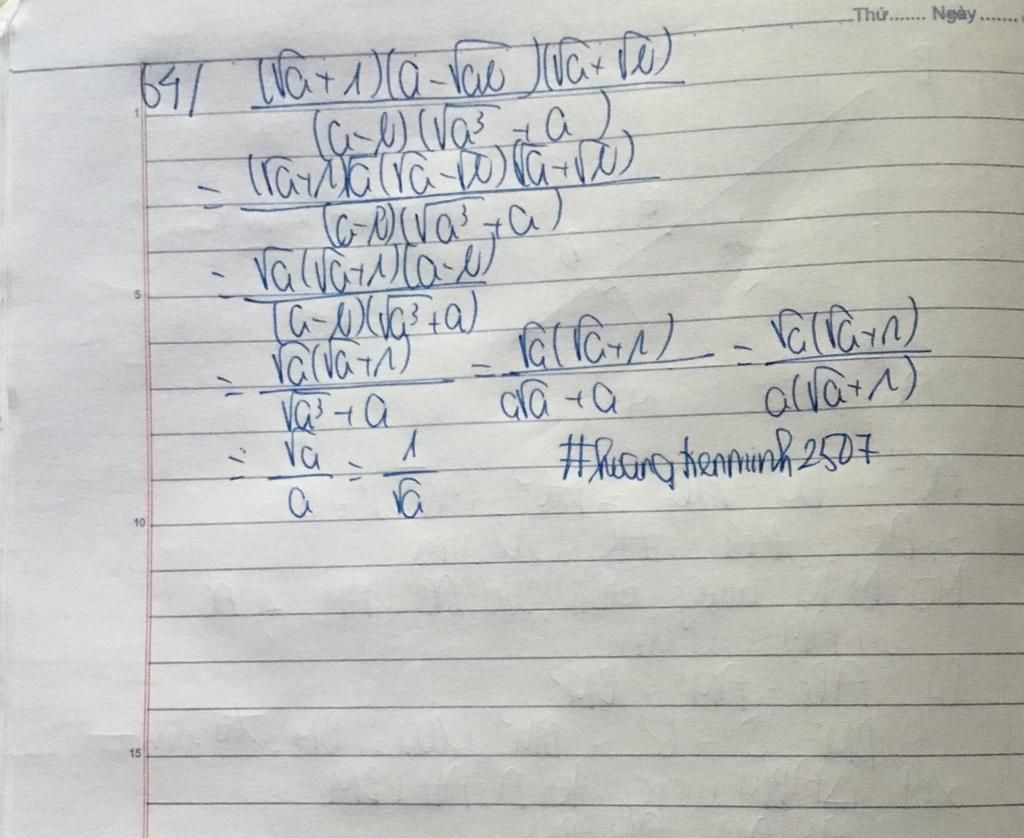 Thứ....... Ngày.......
64/ (√a + 1)(a - √ab)(√a + √b) / (a - b)(√a³ + a)
= (√a + 1)√a(√a - √b)(√a + √b) / (a - b)(√a³ + a)
= √a(√a + 1)(a - b) / (a - b)(√a³ + a)
= √a(√a + 1) / √a³ + a = √a(√a + 1) / a√a + a = √a(√a + 1) / a(√a + 1)
= √a / a = 1 / √a #hoangkenminh2507
1
5
10
15